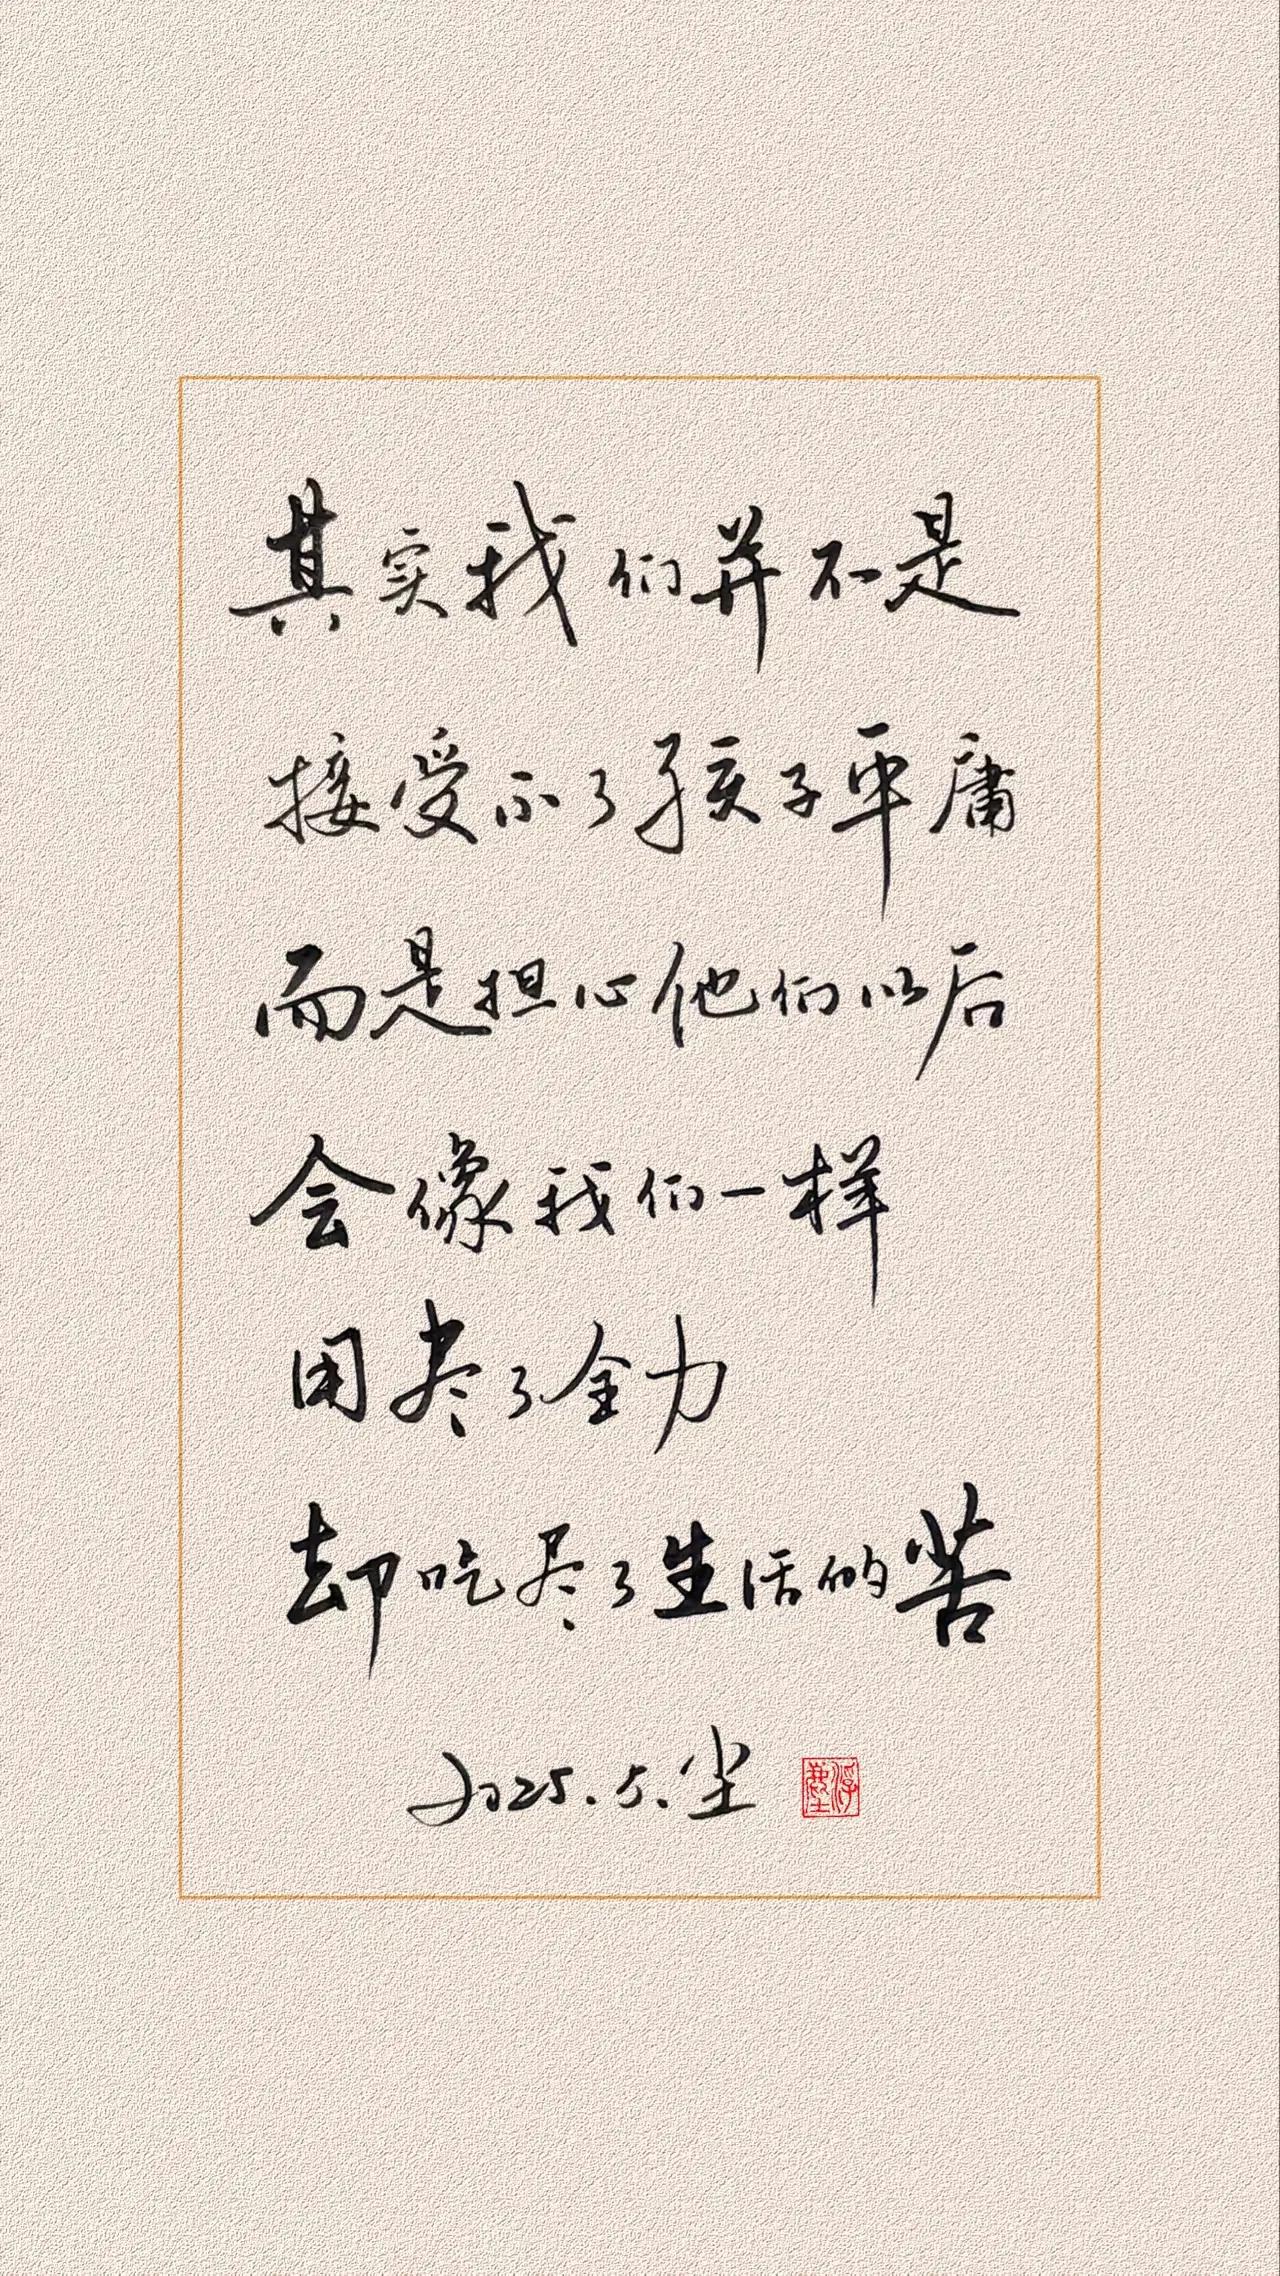 其实我们并不是
接受不了孩子平庸
而是担心他们以后
会像我们一样
用尽了全力
却吃尽了生活的苦
2025.5.尘
浮尘